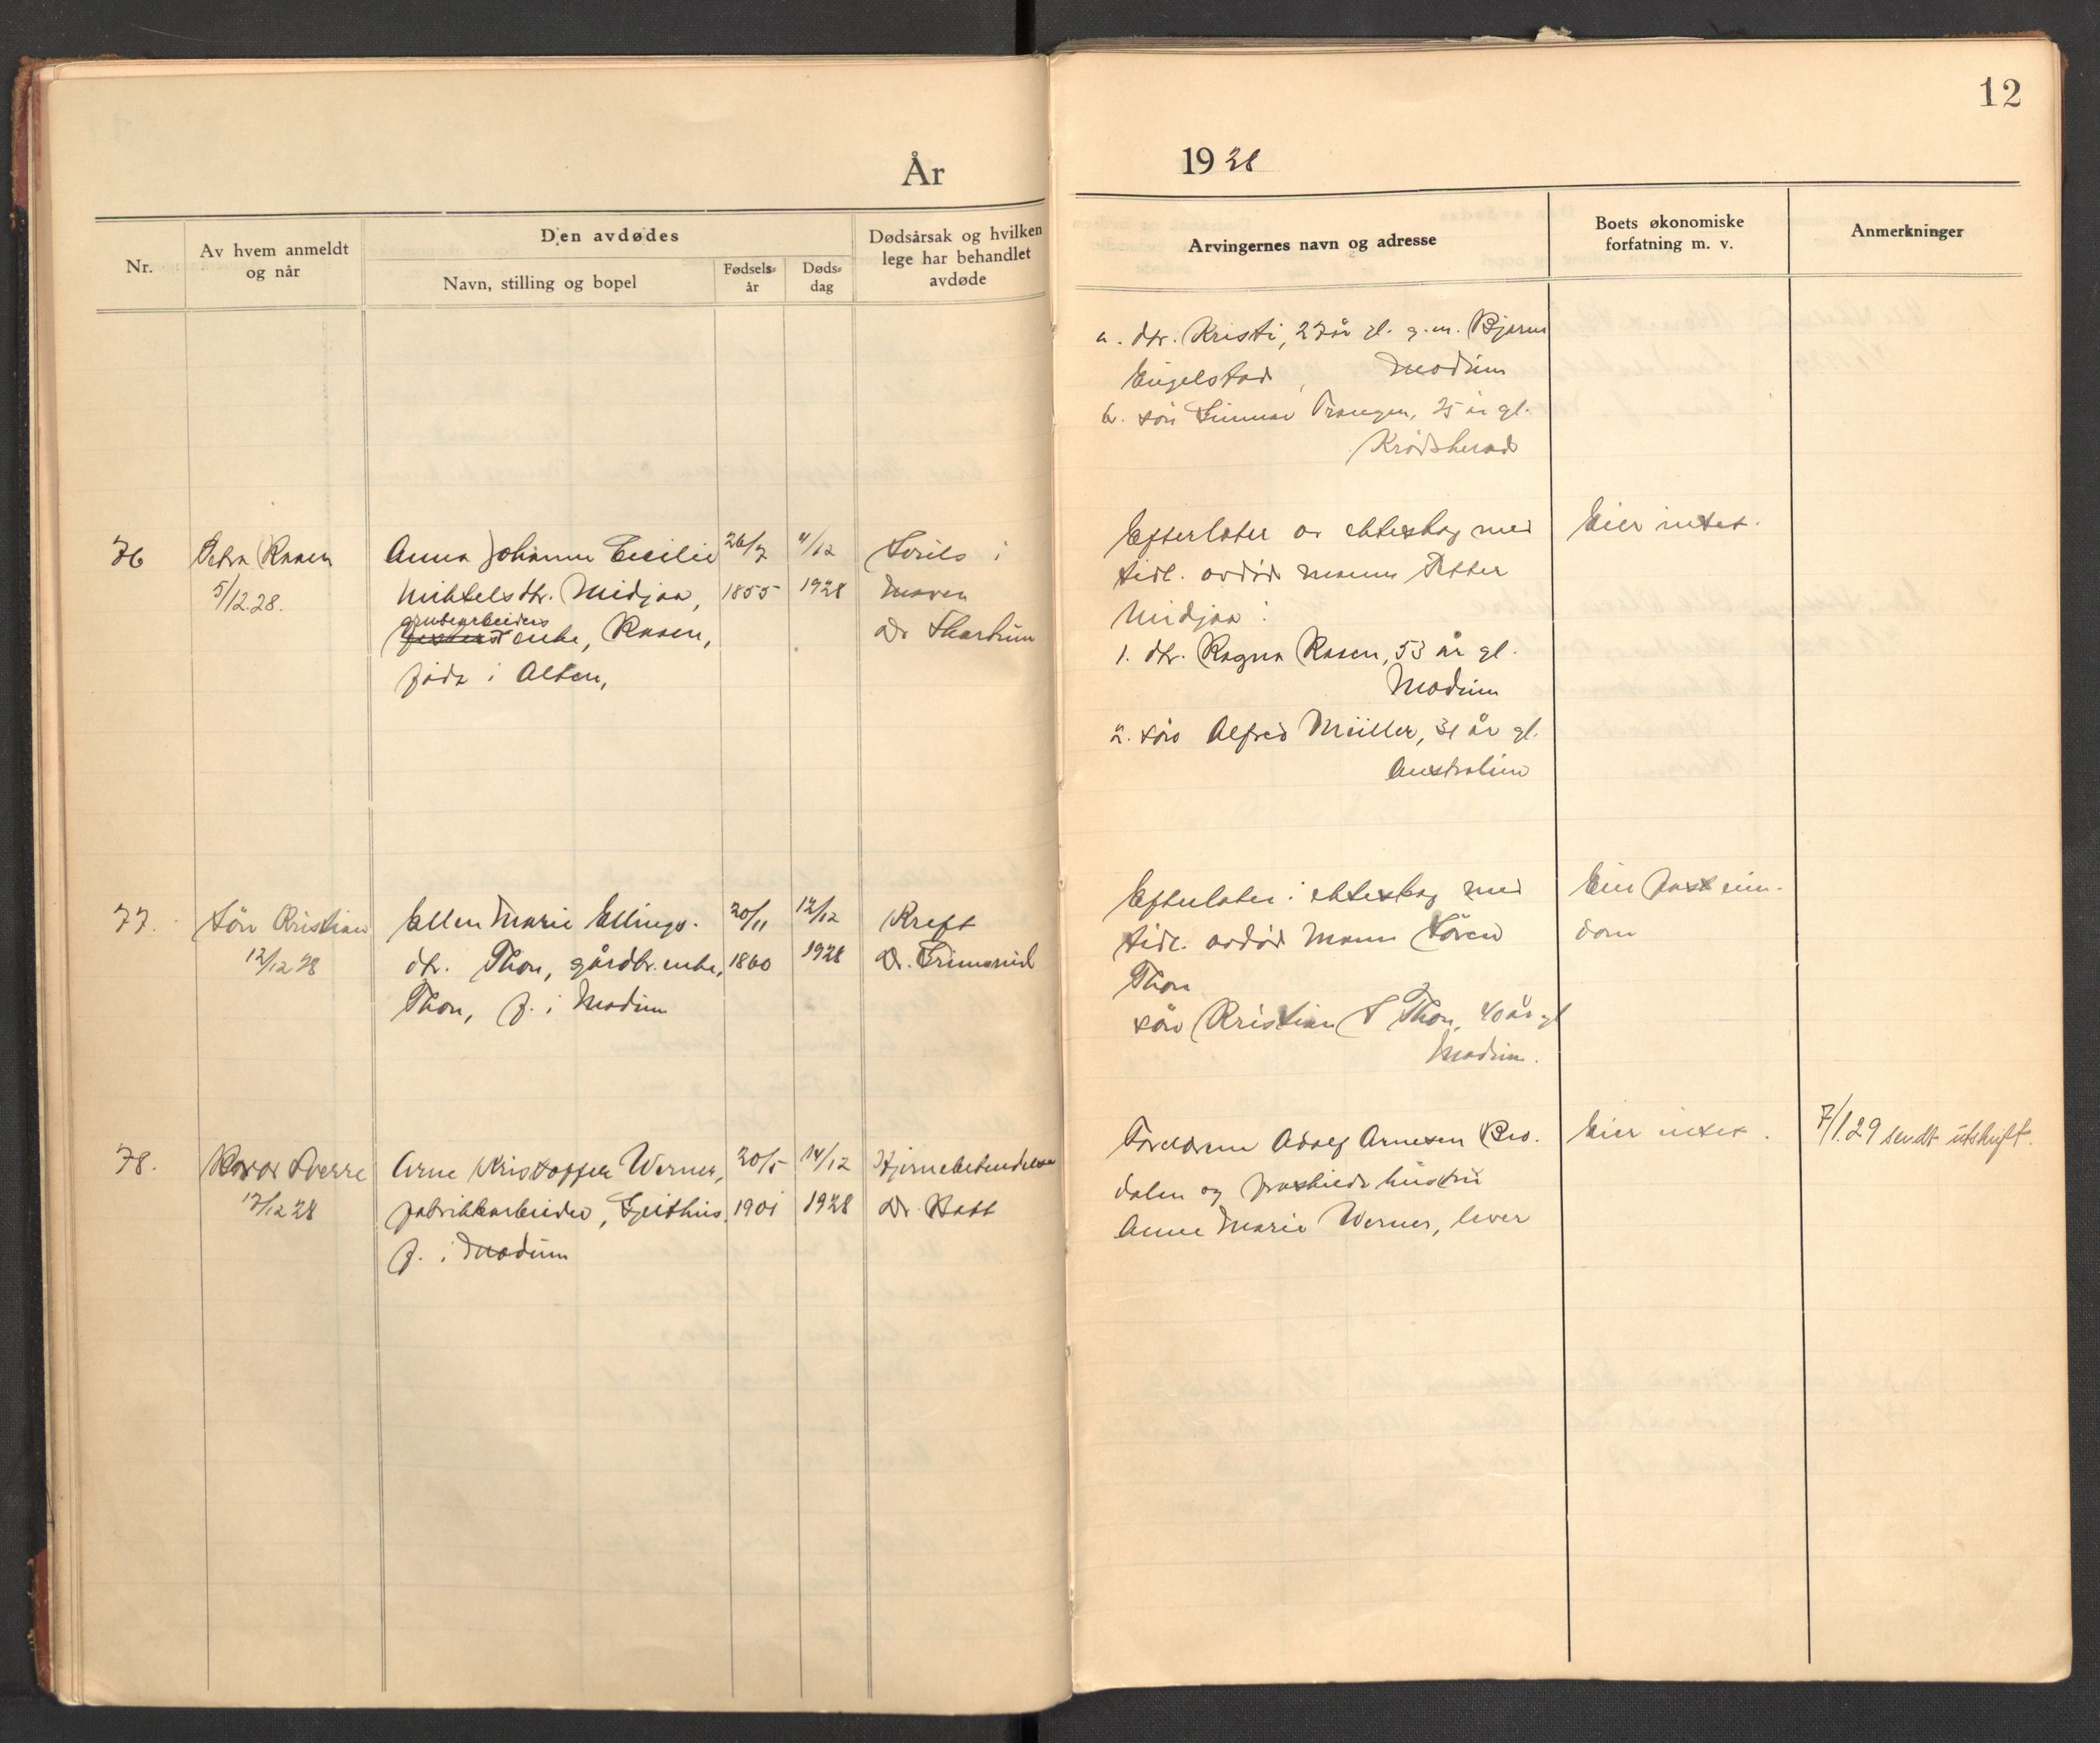 12
År 1928
Nr.
Av hvem anmeldt
og når
Den avdødes
Navn, stilling og bopel
Fødsels-
år
Døds-
dag
Dødsårsak og hvilken
lege har behandlet
avdøde
Arvingernes navn og adresse
Boets økonomiske
forfatning m. v.
Anmerkninger
a. dtr. Kristi, 27 år gl. g. m. Bjarne
Engelstad, Modum
b. søn Gunnar Prangen, 25 år gl.
Krødsherad
76
Petra Raaen
5/12.28.
Anna Johanne Cecilie
Mikkelsdtr. Midjaa,
grubearbeiders
enke, Raaen,
født i Alten,
26/7
1855
4/12
1928
i
Maven
Dr
Efterlater av ekteskap med
tidl. avdød mann Petter
Midjaa:
1. dtr. Ragna Raaen, 53 år gl.
Modum
2. søn Alfred Müller, 31 år gl.
Australien
Eier intet.
77.
Søn Kristian
12/12 28
Ellen Marie Ellings-
dtr. Thon, gårdbr. enke,
Thon, f. i Modum
20/11
1860
12/12
1928
Kreft
Dr.
Efterlater i ekteskap med
tidl. avdød mann Søren
Thon
søn Kristian S Thon, 40 år gl
Modum.
Eier fast eien-
dom
78.
Sverre
17/12 28
Arne Kristoffer Werner,
fabrikkarbeider, Geithus,
f. i Modum
20/5
1901
14/12
1928
Hjernebetendelse
Dr. Hott
Foreldrene Adolf Arnesen Bro-
dalen og fraskilt hustru
Anne Marie Werner, lever
Eier intet.
7/1.29 sendt utskrift.